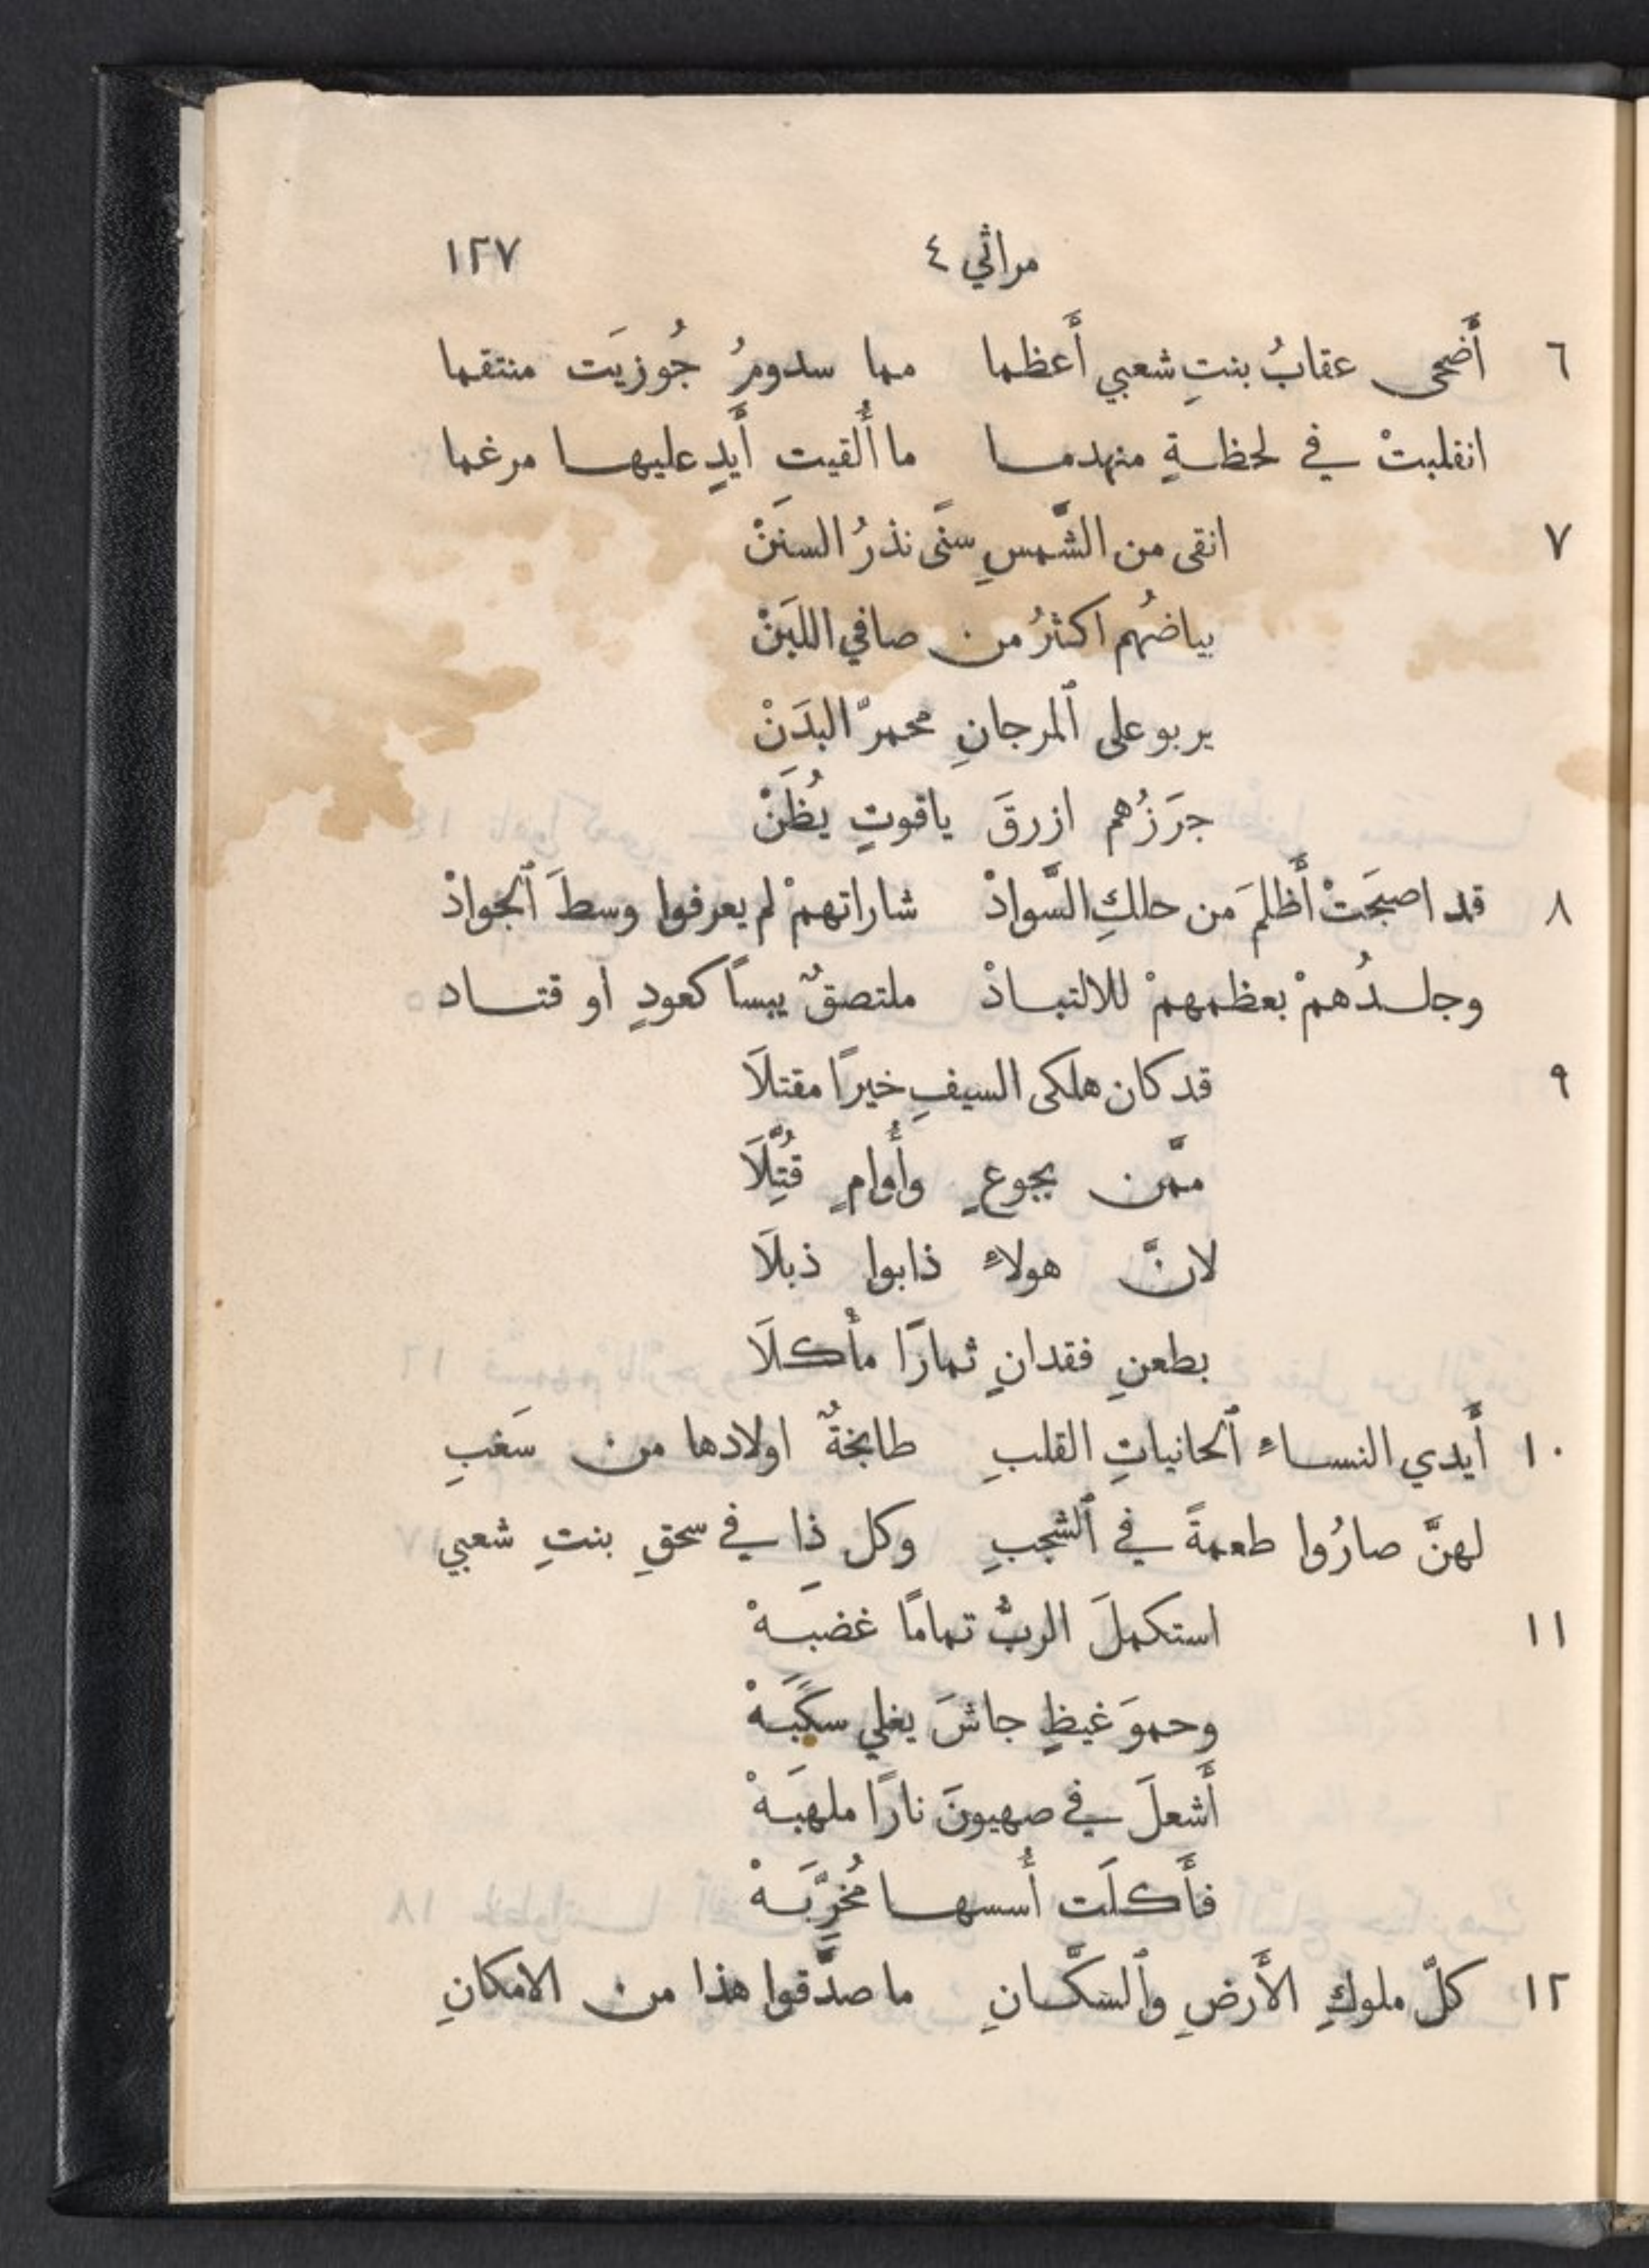 مراثي ٤ ١٢٧
٦ أَضحى عقابُ بنتِ شعبي أَعظما مما سدومُ جُوزيَت منتقما
انقلبتْ في لحظةٍ منهدما ما أُلقيت أَيدٍ عليها مرغما
٧ انقى من الشَّمسِ سنًى نذرُ السنَنْ
بياضُهم اكثرُ من صافي اللبَنْ
يربو على ٱلمرجانِ محمرّ البدَنْ
جرَزُهم ازرقَ ياقوتٍ يُظَنْ
٨ قد اصبحَتْ أَظلمَ من حلكِ السَّوادْ شاراتهمْ لم يعرفوا وسطَ ٱلجوادْ
وجلدُهمْ بعظمهمْ للالتبادْ ملتصقٌ يبسًا كعودٍ او قتاد
٩ قد كان هلكى السيفِ خيرًا مقتلَا
ممَّن بجوعٍ وأُوامٍ قُتِّلَا
لانَّ هولاءِ ذابوا ذبلَا
بطعنِ فقدانٍ ثمارًا مأْكلَا
١٠ أَيدي النساءِ ٱلحانياتِ القلبِ طابخةٌ اولادها من سَغبِ
لهنَّ صارُوا طعمةً في ٱلشجبِ وكل ذا في سحقِ بنتِ شعبي
١١ استكملَ الربُّ تمامًا غضبَهْ
وحموَ غيظٍ جاشَ يغلي سكبَهْ
أَشعلَ في صهيونَ نارًا ملهبَهْ
فأَكلَت أُسسها مُخرِّبَهْ
١٢ كلّ ملوكِ الأَرضِ وٱلسكَّانِ ما صدَّقوا هذا من الامكانِ